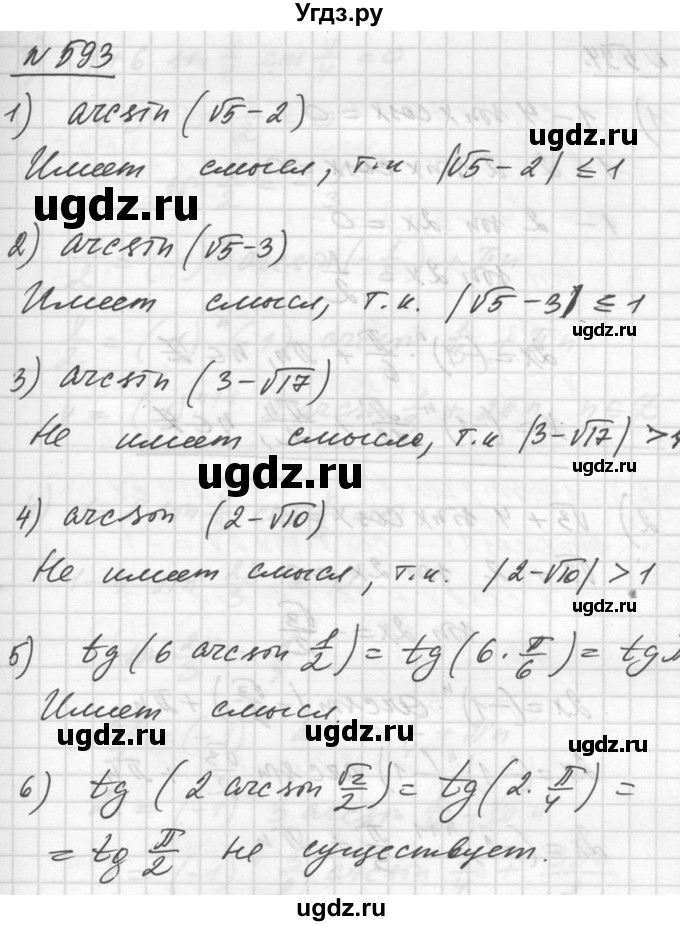 Угдз.ру
№593
1) arcsin (√5-2)
Имеет смысл, т.к |√5-2| ≤ 1
ugdz.ru
ugdz.ru
2) arcsin (√5-3)
Имеет смысл, т.к. |√5-3| ≤ 1
ugdz.ru
3) arcsin (3-√17)
Не имеет смысла, т.к |3-√17| > 1
ugdz.ru
ugdz.ru
4) arcsin (2-√10)
Не имеет смысл, т.к. |2-√10| > 1
ugdz.ru
5) tg (6 arcsin 1/2) = tg (6·π/6) = tg π
Имеет смысл.
ugdz.ru
ugdz.ru
ugdz.ru
6) tg (2 arcsin √2/2) = tg (2·π/4) =
= tg π/2 не существует.
ugdz.ru